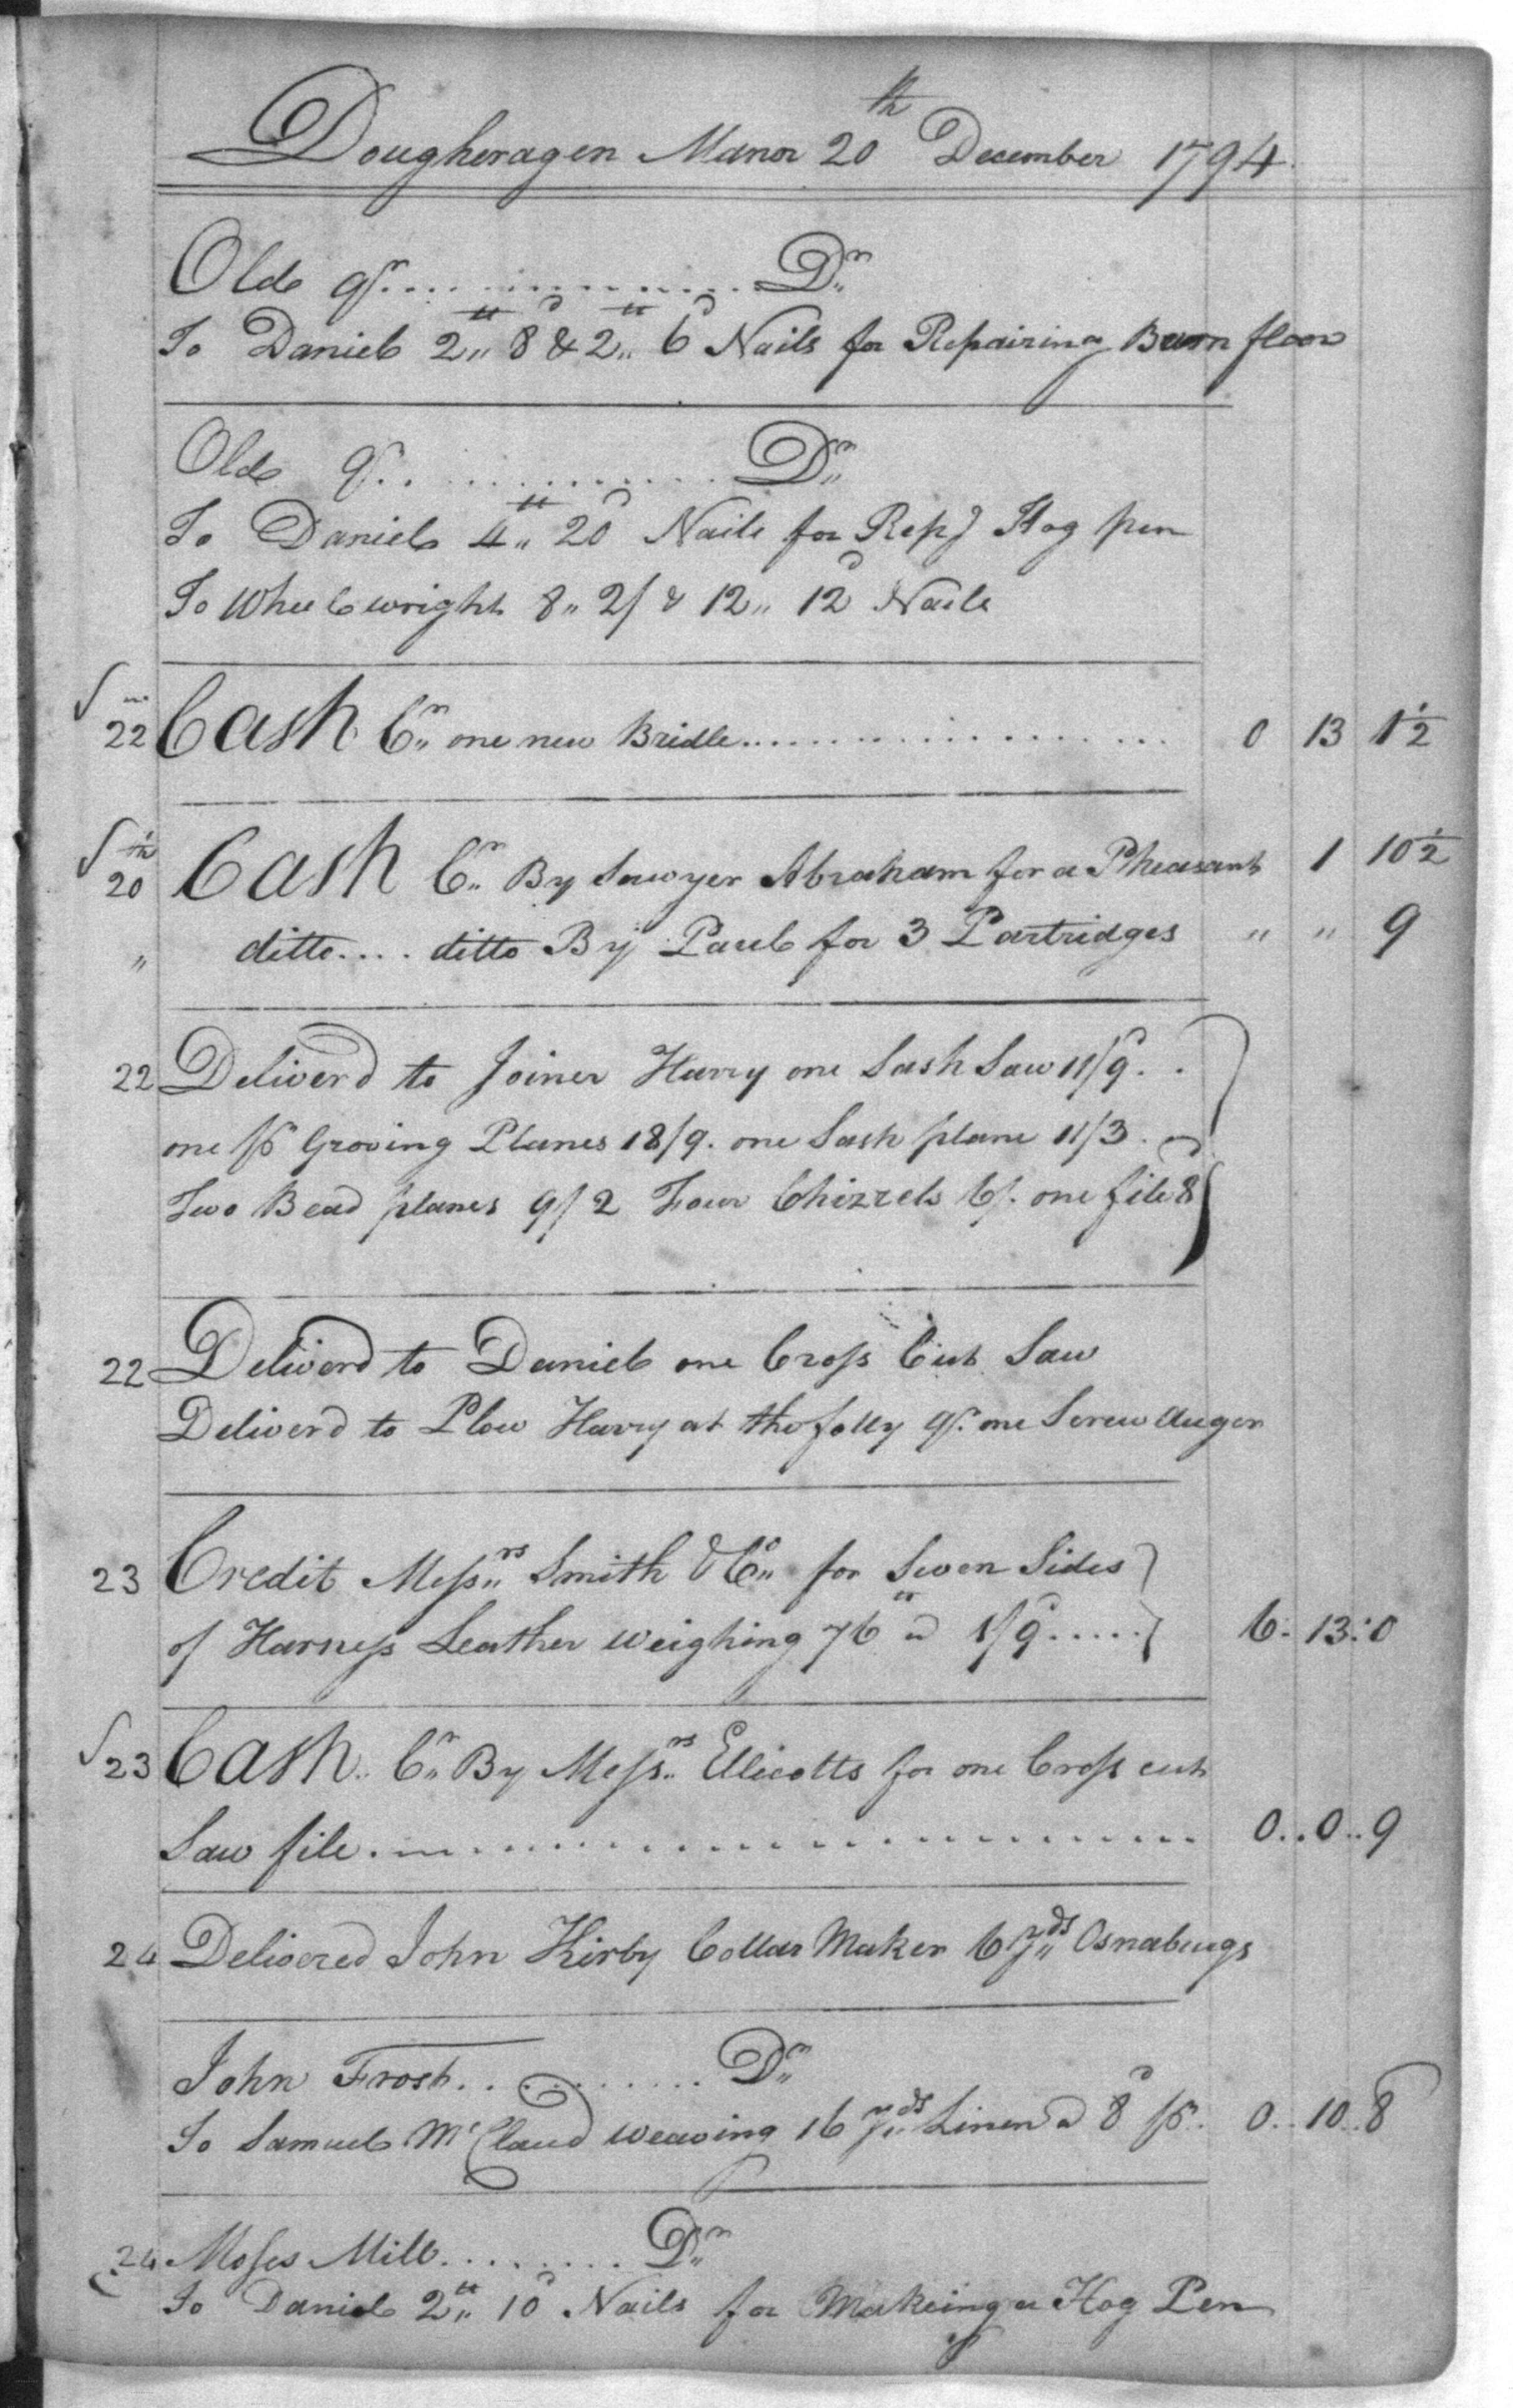 Dougheragen Manor 20th December 1794
Olde qr. .............. Dr
To Daniel 2 lb 8d & 2 lb 6d Nails for Repairing Barn floor
Olde qr. .............. Dr
To Daniel 4 lb 20d Nails for Repg Hog pen
To Wheelwright 8,, 2/ & 12,, 12d Nails
22 Cash Cr one new Bridle .............. 0 13 1 1/2
20th Cash Cr By Sawyer Abraham for a Pheasant 1 10 1/2
" ditto.... ditto By Paul for 3 Partridges " " 9
22 Deliverd to Joiner Harry one Sash Saw 11/9..
one pr Groving Planes 18/9. one Sash plane 11/3.
Two Bead planes 9/2 Four Chizzels 6/. one file 8d
22 Deliverd to Daniel one Cross Cut Saw
Deliverd to Plow Harry at the folly qr. one Screw Auger
23 Credit Messrs Smith & Co for Seven Sides
of Harness Leather weighing 76 lb @ 1/9..... 6. 13: 0
23 Cash.. Cr By Messrs Ellicotts for one Cross cut
Saw file .............. 0..0..9
24 Delivered John Kirby Collar Maker 6 yds Osnabrugs
John Frost.............. Dr
To Samuel McClaud weaving 16 yds Linen @ 8d pr. 0..10..8
24 Moses Mill......... Dr
To Daniel 2 lb 10d Nails for Makeing a Hog Pen